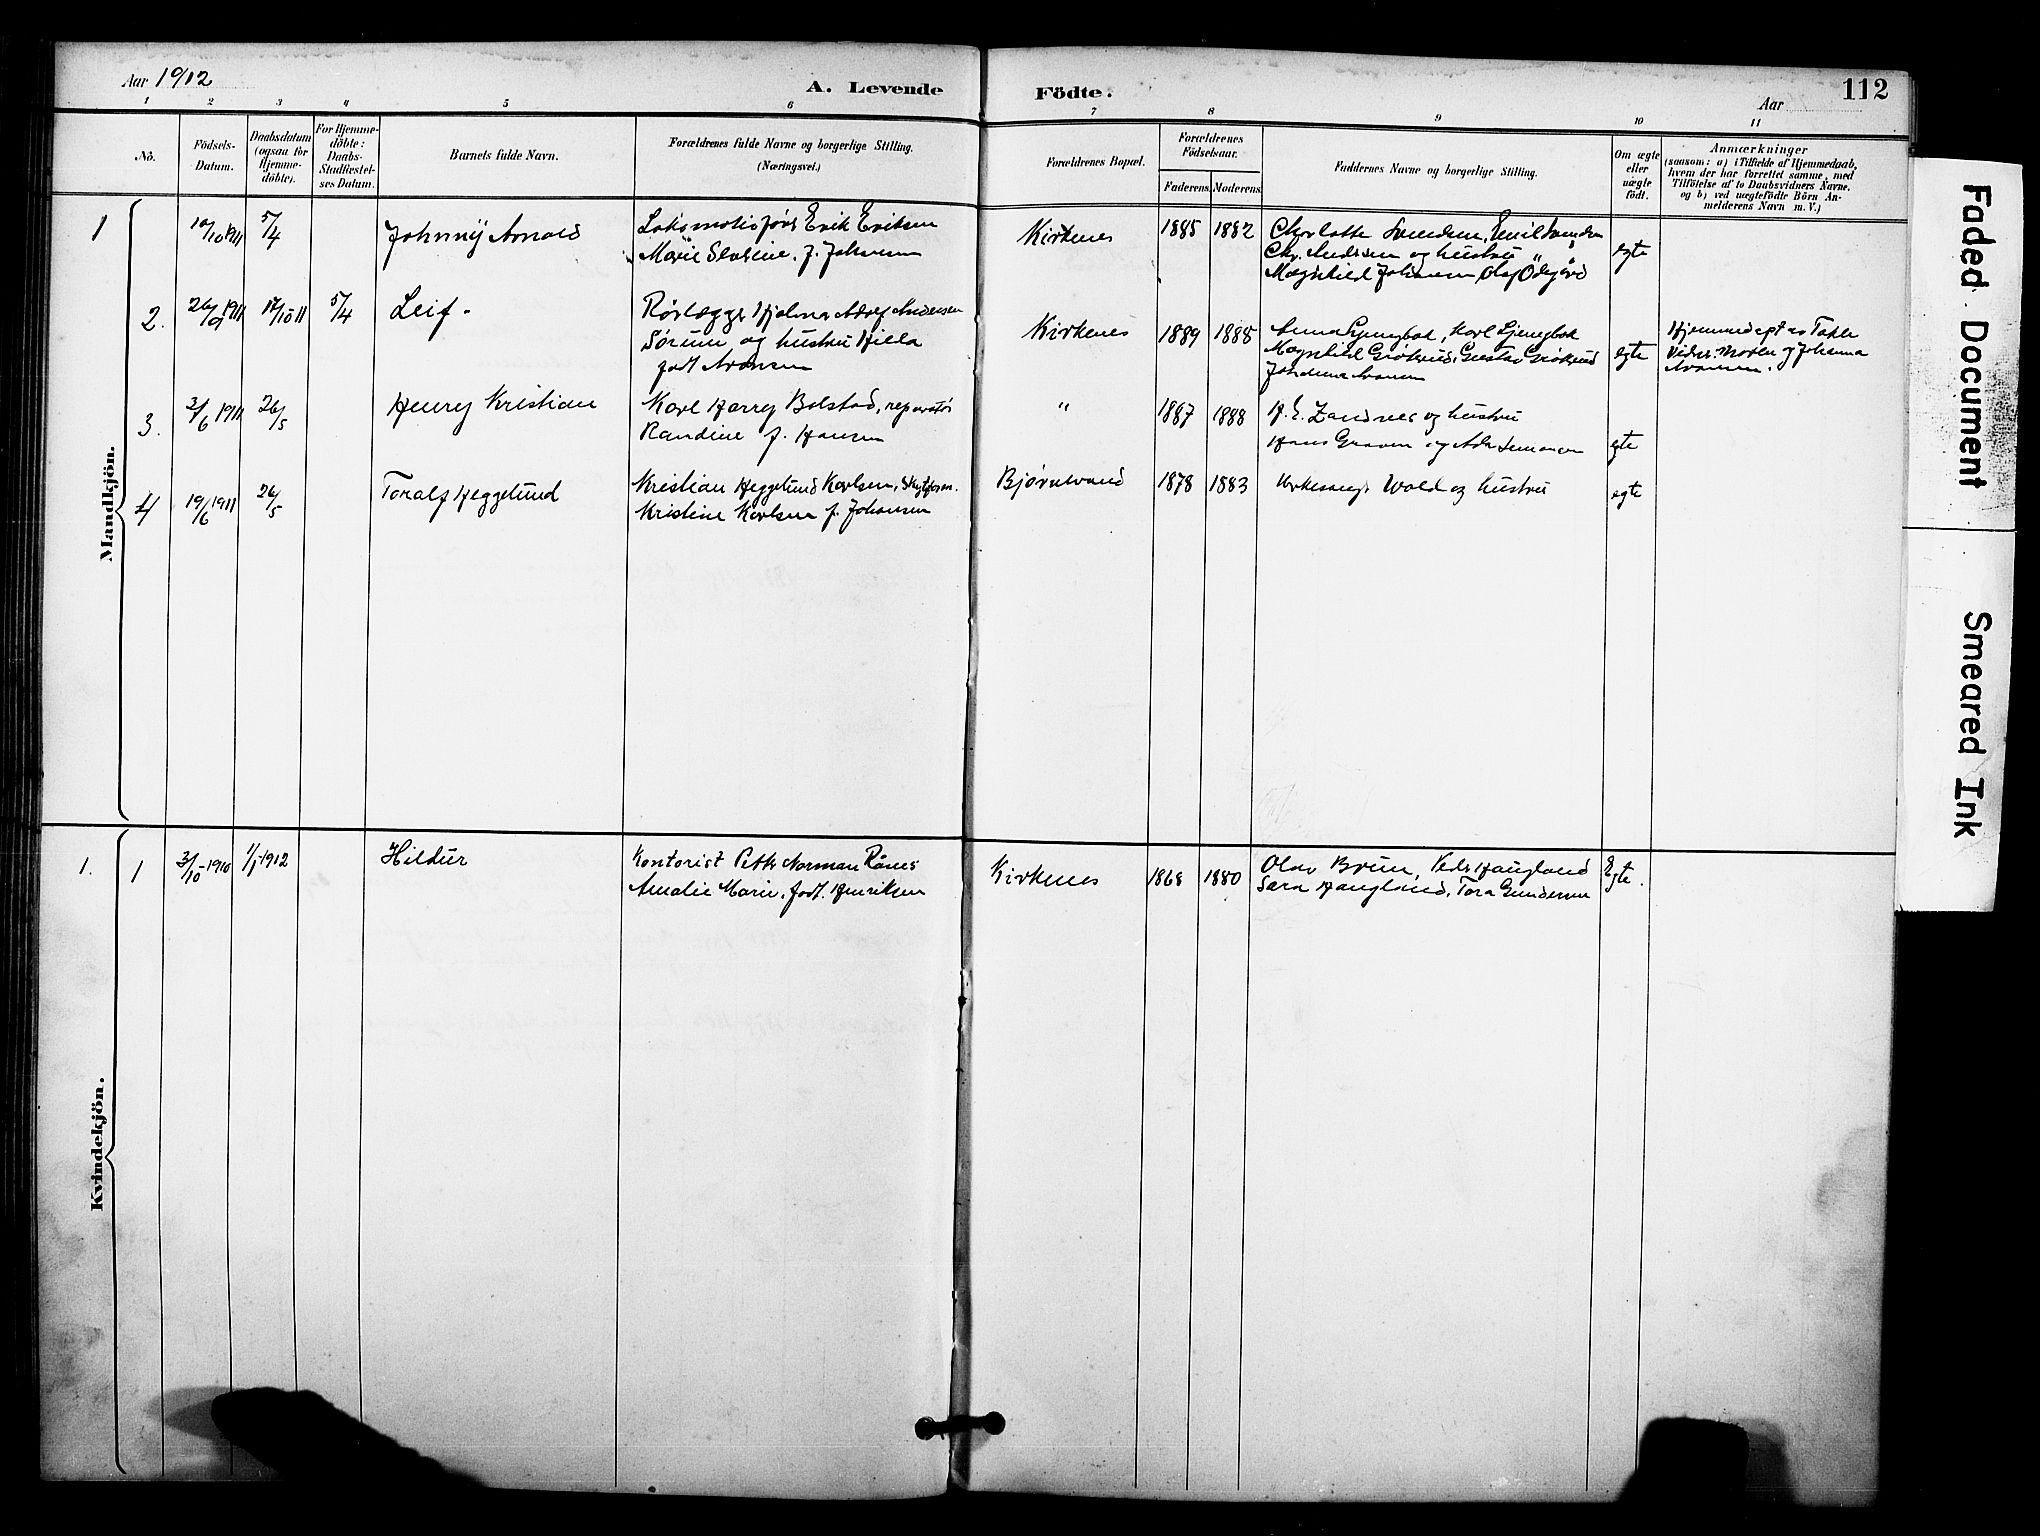 Aar 1912
A. Levende Födte.
Aar
112
1 2 3 4 5 6 7 8 9 10 11
No.
Födsels-
Datum.
Daabsdatum
(ogsaa for
Hjemme-
döbte).
For Hjemme-
döbte:
Daabs-
Stadfæstel-
ses Datum.
Barnets fulde Navn.
Forældrenes fulde Navne og borgerlige Stilling.
(Næringsvei.)
Forældrenes Bopæl.
Forældrenes
Födselsaar.
Faderens. Moderens.
Faddernes Navne og borgerlige Stilling.
Om ægte
eller
uægte
födt.
Anmærkninger
(saasom: a) i Tilfælde af Hjemmedaab,
hvem der har forrettet samme, med
Tilföielse af to Daabsvidners Navne.
og b) ved uægtefödte Börn An-
melderens Navn m. V.)
Mandkjön.
1 10/10 1911 5/4 Johnny Arnold
Lokomotivförer Erik Eriksen
Marie f. Johansen
Kirkenes 1885 1882
Charlotte Svendsen, Emil Svendsen
Chr. Andersen og hustru
Magnhild Johansen Olaf Ödegård
egte
2. 26/9 1911 17/10 11 5/4 Leif.
Rørlægger Hjalmar Adolf Andersen
Sørum og hustru Hilla
født Aronsen
Kirkenes 1889 1888
Anna Ljengbak, Karl Ljengbak
Magnhild Gustav
Johanna Aronsen
egte
Hjemmedøpt av
og Johanna
Aronsen.
3. 3/6 1911 26/5 Henry Kristian
Karl Harry Bolstad, reparatør
Randine f. Hansen
" 1887 1888
H. E. Zandnes og hustru
Hans og
egte
4 19/6 1911 26/5 Toralf Heggelund
Kristian Heggelund Karlsen,
Kristine Karlsen f. Johansen
Bjørnevand 1878 1883
Wold og hustru
egte
Kvindekjön.
1. 1 3/10-1910 1/1-1912 Hildur
Kontorist Peter Norman Rånes
Amalie Marie, født Henriksen
Kirkenes 1868 1880
Olav Brun, Peder Haugland
Sara Haugland, Tora Gundersen
Egte.
Faded Document
Smeared Ink